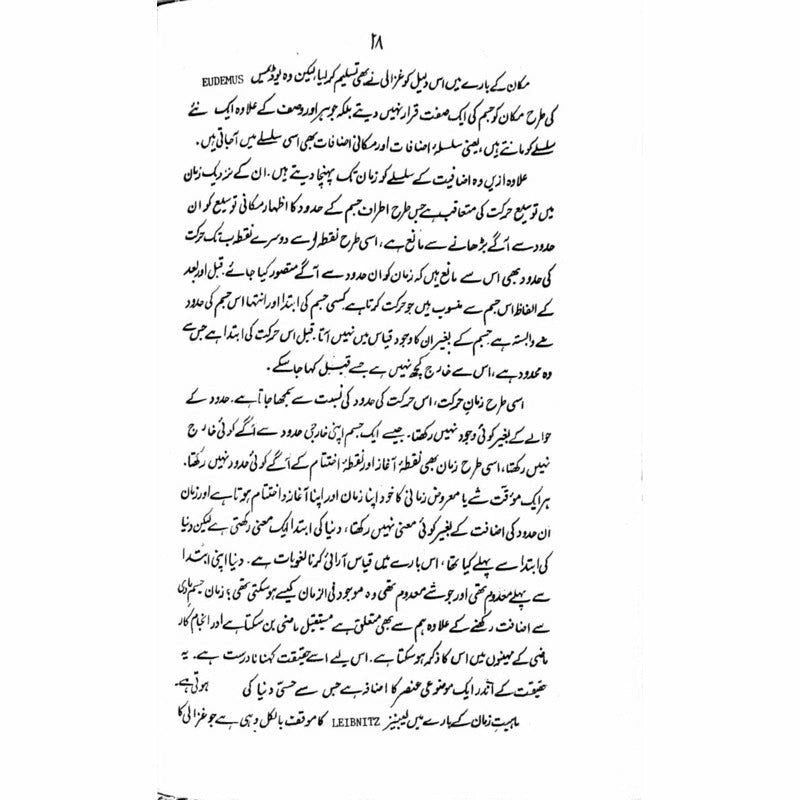 ۲۸
مکان کے بارے میں اس دلیل کو غزالی نے بھی تسلیم کر لیا لیکن وہ یوڈیمس EUDEMUS
کی طرح مکان کو جسم کی ایک صفت قرار نہیں دیتے بلکہ جوہر اور وصف کے علاوہ ایک نئے
سلسلے کو مانتے ہیں، یعنی سلسلۂ اضافات اور مکانی اضافات بھی اسی سلسلے میں آجاتی ہیں۔
علاوہ ازیں وہ اضافیت کے سلسلے کو زمان تک پہنچا دیتے ہیں۔ ان کے نزدیک زمان
میں توسیع حرکت کی متعاقب ہے جس طرح اطراف جسم کے حدود کا اظہار مکانی توسیع کو ان
حدود سے آگے بڑھانے سے مانع ہے، اسی طرح نقطہ لو سے دوسرے نقطہ ب تک حرکت
کی حدود بھی اس سے مانع ہیں کہ زمان کو ان حدود سے آگے متصور کیا جائے۔ قبل اور بعد
کے الفاظ اس جسم سے منسوب ہیں جو حرکت کرتا ہے کسی جسم کی ابتدا اور انتہا اس جسم کی حدود
سے وابستہ ہے جسم کے بغیر ان کا وجود قیاس میں نہیں آتا۔ قبل اس حرکت کی ابتدا ہے جس سے
وہ محدود ہے، اس سے خارج کچھ نہیں ہے جسے قبل کہا جا سکے۔
اسی طرح زمانِ حرکت، اس حرکت کی حدود کی نسبت سے سمجھا جاتا ہے۔ حدود کے
حوالے کے بغیر کوئی وجود نہیں رکھتا۔ جیسے ایک جسم اپنی خارجی حدود سے آگے کوئی خارج
نہیں رکھتا، اسی طرح زمان بھی نقطۂ آغاز اور نقطۂ اختتام کے آگے کوئی حدود نہیں رکھتا۔
ہر ایک مؤقت شے یا معروض زمانی کا خود اپنا زمان اور اپنا آغاز و اختتام ہوتا ہے اور زمان
ان حدود کی اضافت کے بغیر کوئی معنی نہیں رکھتا، دنیا کی ابتدا ایک معنی رکھتی ہے لیکن دنیا
کی ابتدا سے پہلے کیا تھا، اس بارے میں قیاس آرائی کرنا لغویات ہے۔ دنیا اپنی ابتدا
سے پہلے معدوم تھی اور جو شے معدوم تھی وہ موجود فی الزمان کیسے ہو سکتی تھی؟ زمان جسم مادی
سے اضافت رکھنے کے علاوہ ہم سے بھی متعلق ہے مستقبل ماضی بن سکتا ہے اور انجام کار
ماضی کے مہینوں میں اس کا ذکر ہو سکتا ہے۔ اس لیے اسے حقیقت کہنا نادرست ہے۔ یہ
حقیقت کے اندر ایک موضوعی عنصر کا اضافہ ہے جس سے حسی دنیا کی ہوتی ہے۔
ماہیتِ زمان کے بارے میں لیبنیز LEIBNITZ کا موقف بالکل وہی ہے جو غزالی کا